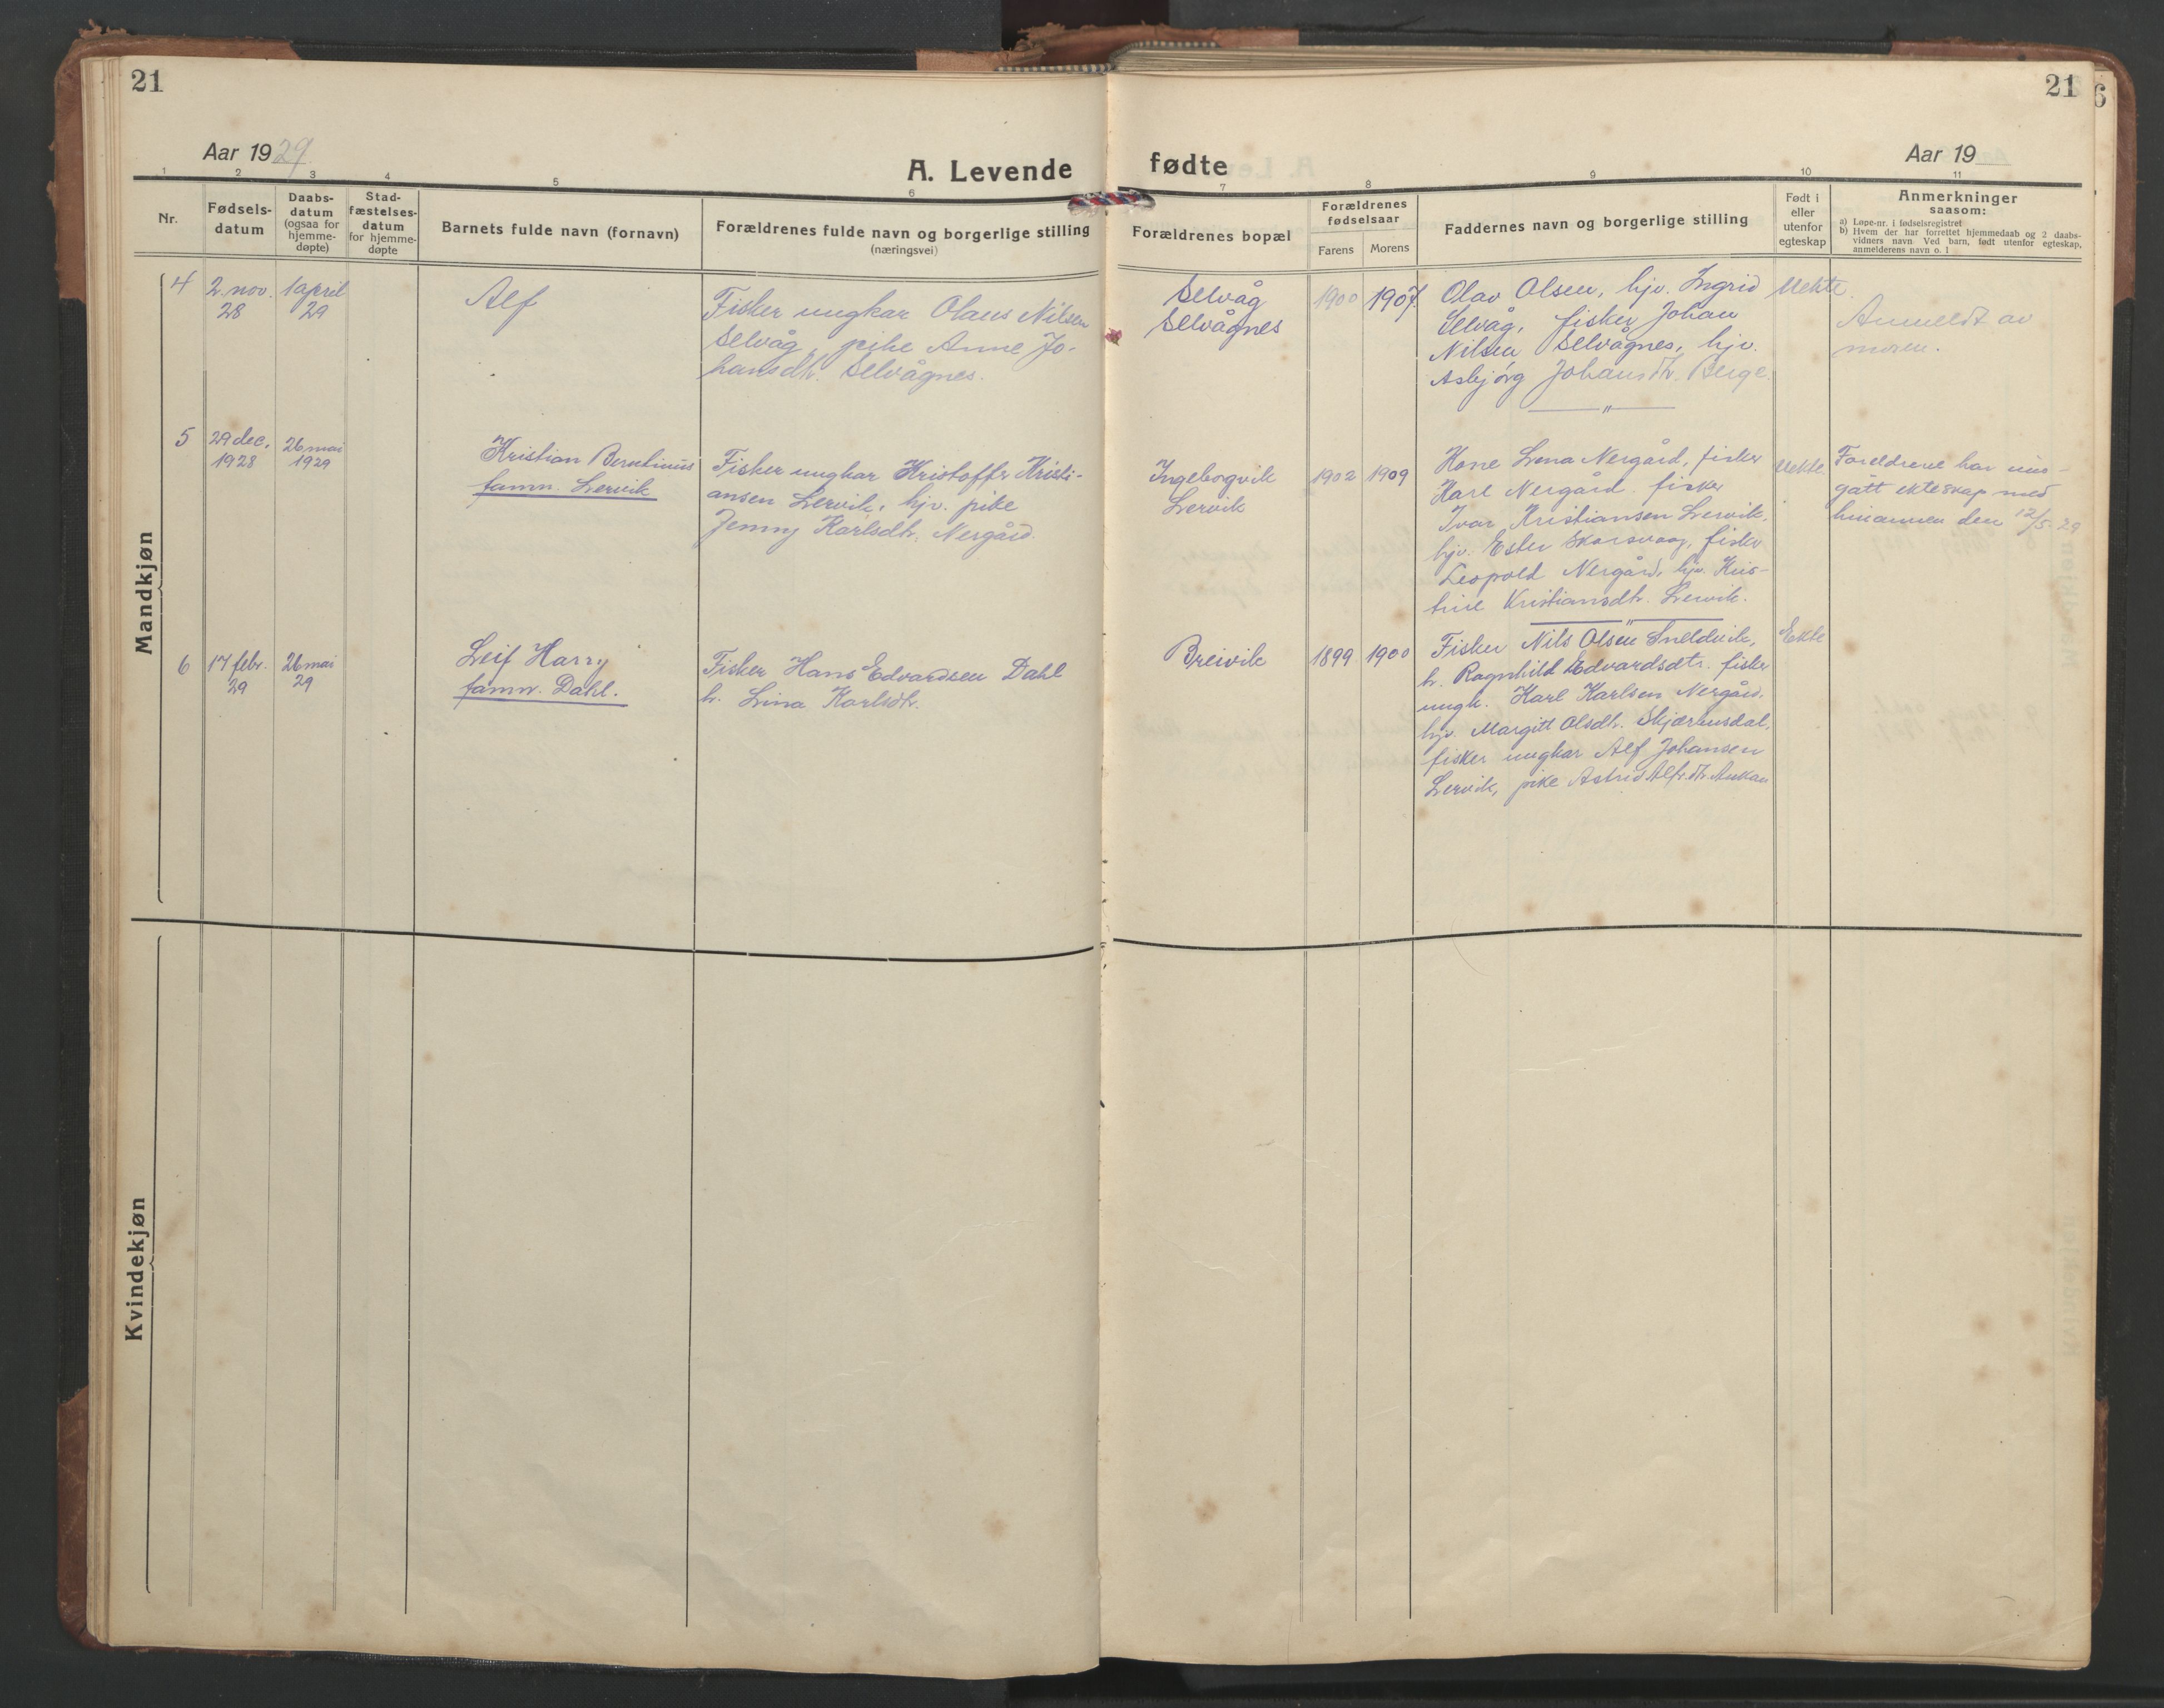 21
Aar 1929
A. Levende
1 2 3 4 5 6
Nr.
Fødsels-
datum
Daabs-
datum
(ogsaa for
hjemme-
døpte)
Stad-
fæstelses-
datum
for hjemme-
døpte
Barnets fulde navn (fornavn)
Forældrenes fulde navn og borgerlige stilling
(næringsvei)
Mandkjøn
4
2. nov.
28
1 april
29
Alf
Fisker ungkar Olaus Nilsen
Selvåg, pike Anne Jo-
hansdtr. Selvågnes.
5
29 dec.
1928
26 mai
1929
Kristian Berntinius
famn. Lervik
Fisker ungkar Kristoffr Kristi-
ansen Lervik, hjv. pike
Jenny Karlsdtr. Nergård.
6
17 febr.
29
26 mai
29
Leif Harry
famn. Dahl.
Fisker Hans Edvardsen Dahl
h. Lina Karlsdtr.
Kvindekjøn
21
6
fødte
Aar 19
7 8 9 10 11
Forældrenes bopæl
Forældrenes
fødselsaar
Farens
Morens
Faddernes navn og borgerlige stilling
Født i
eller
utenfor
egteskap
Anmerkninger
saasom:
a) Løpe-nr. i fødselsregistret
b) Hvem der har forrettet hjemmedaab og 2 daabs-
vidners navn. Ved barn, født utenfor egteskap,
anmelderens navn o. l
Selvåg
Selvågnes
1900
1907.
Olav Olsen, hjv. Ingrid
Selvåg, fisker Johan
Nilsen Selvågnes, hjv.
Asbjørg Johansdtr. Berge.
Uekte.
Anmeldt av
moren.
Ingeborgvik
Lervik
1902
1909
Kone Lena Nergård, fisker
Karl Nergård. fisker
Ivar Kristiansen Lervik,
hjv. Ester Skarsvaag, fisker
Leopold Nergård, hjv. Kris-
tine Kristiansdtr. Lervik.
Uekte
Foreldrene har inn-
gått ekteskap med
hinannen den 12/5-29
Breivik
1899
1900
Fisker Nils Olsen Sneldvik,
h. Ragnhild Edvardsdtr. fisker
ungk. Karl Karlsen Nergård,
hjv. Margitt Olsdtr. Skjærmsdal,
fisker ungkar Alf Johansen
Lervik, pike Astrid Alfr.dtr. Aukan
Ekte